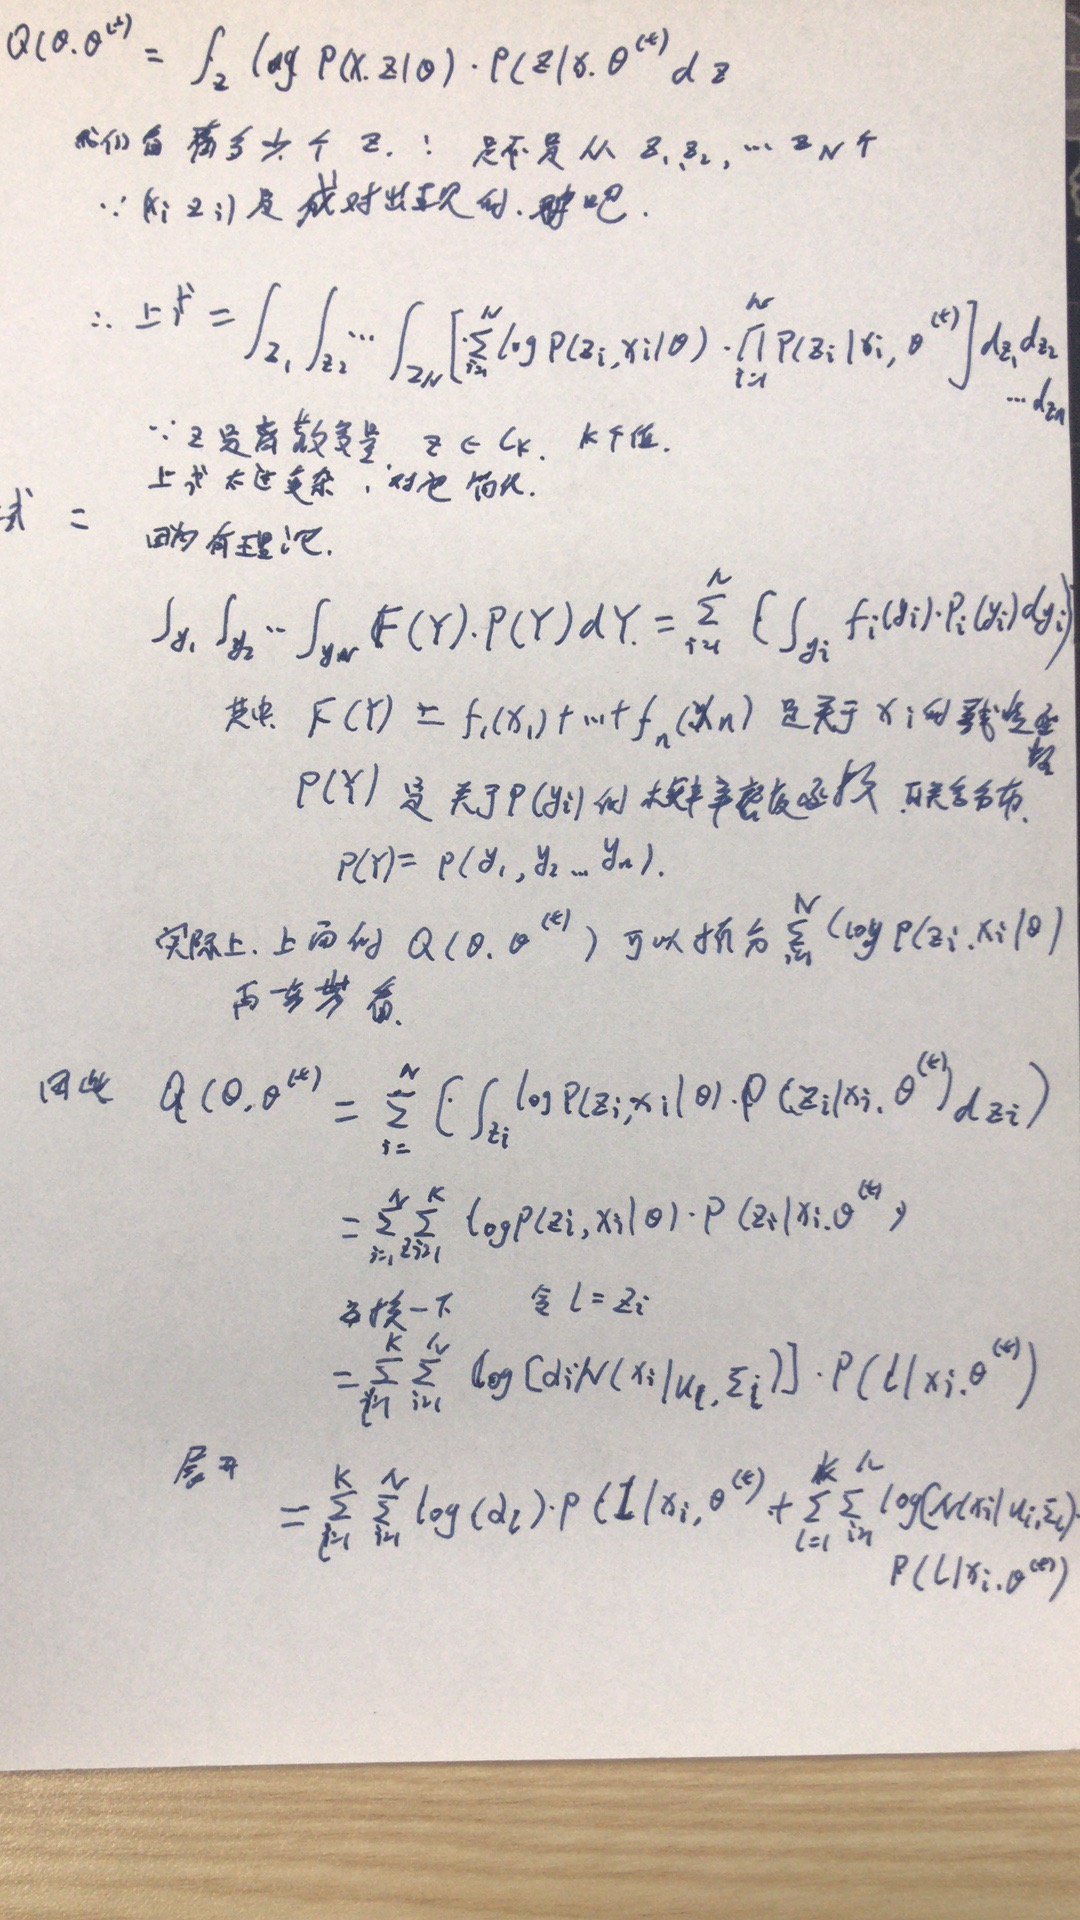 Q(θ.θ^(t)) = ∫_z log P(x.z|θ)·P(z|x.θ^(t) dz
我们看有多少个 z. : 是不是从 z₁,z₂, … z_N 个
∵ (xᵢ zᵢ) 是成对出现的. 吧.
∴ 上式 = ∫_z₁ ∫_z₂ … ∫_zN [∑_{i=1}^N log P(zᵢ,xᵢ|θ)·∏_{i=1}^N P(zᵢ|xᵢ, θ^(t)] dz₁ dz₂
… dzn
∵ z 是离散变量, z ∈ C_K. K个值.
上式太过复杂, 对它简化.
式 =
因为有理论.
∫_y₁ ∫_y₂ … ∫_yN F(Y)·P(Y)dY = ∑_{i=1}^N (∫_yᵢ fᵢ(yᵢ)·Pᵢ(yᵢ)dyᵢ)
其中 F(Y) = f₁(x₁)+…+f_n(x_n) 是关于 xᵢ 的线性函数
P(Y) 是关于P(yᵢ)的概率密度函数 联合分布.
P(Y)= P(y₁, y₂ … y_n).
实际上. 上面的 Q(θ.θ^(t)) 可以拆分 ∑_{i=1}^N (log P(zᵢ.xᵢ|θ)
看.
因此 Q(θ,θ^(t)) = ∑_{i=}^N (∫_zᵢ log P(zᵢ,xᵢ|θ)·P(zᵢ|xᵢ.θ^(t)) dzᵢ)
= ∑_{i=1}^N ∑_{zᵢ=1}^K log P(zᵢ,xᵢ|θ)·P(zᵢ|xᵢ.θ^(t))
替换一下 令 l = zᵢ
= ∑_{l=1}^K ∑_{i=1}^N log[αᵢN(xᵢ|u_l, Σᵢ)]·P(l|xᵢ.θ^(t))
展开
= ∑_{l=1}^K ∑_{i=1}^N log(α_l)·P(l|xᵢ,θ^(t) + ∑_{l=1}^K ∑_{i=1}^N log[N(xᵢ|uᵢ,Σᵢ)·
P(l|xᵢ.θ^(t))